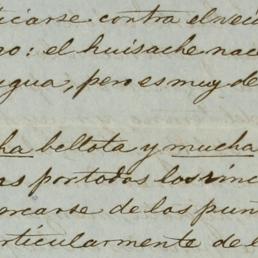 icarse contra el veci
go: el huisache nac
agua, pero es muy de
ha bellota y mucha
as por todos los rinc
ercarse de los puñ
articularmente de l